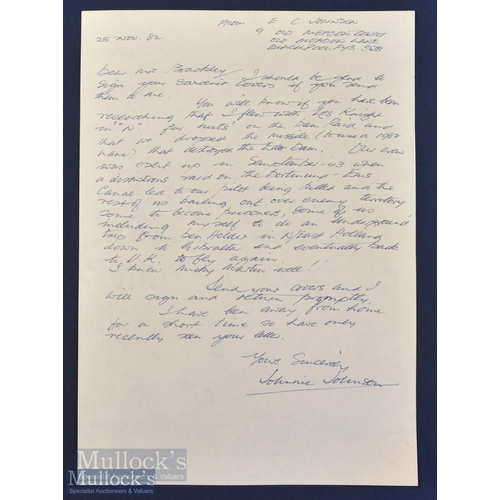 FROM: E C JOHNSON
25 NOV. 82
9 OLD MEADOW COURT
OLD MEADOW LANE
BLACKPOOL FY3
Dear Mr Brackley, I should be glad to
sign your souvenir covers if you send
them to me.
You will know if you have been
researching that I flew with Les Knight
in "N" for nuts on the Dam Raid and
that we dropped the missile
that destroyed the Eder Dam. Our crew
was split up in September 43 when
a disastrous raid on the Dortmund - Ems
Canal led to our pilot being killed and the
rest of us bailing out over enemy territory
some to become prisoners, some of us
including myself to do an underground
trip from Den Helder in N/West Holland
down to Gibraltar and eventually back
to U.K. to fly again.
I knew Micky Martin well!!
Send your covers and I
will sign and return promptly.
I have been away from home
for a short time so have only
recently seen your letter.
Yours Sincerely
Johnnie Johnson
Mullock's
Specialist Auctioneers & Valuers
Mullock's
Specialist Auctioneers & Valuers